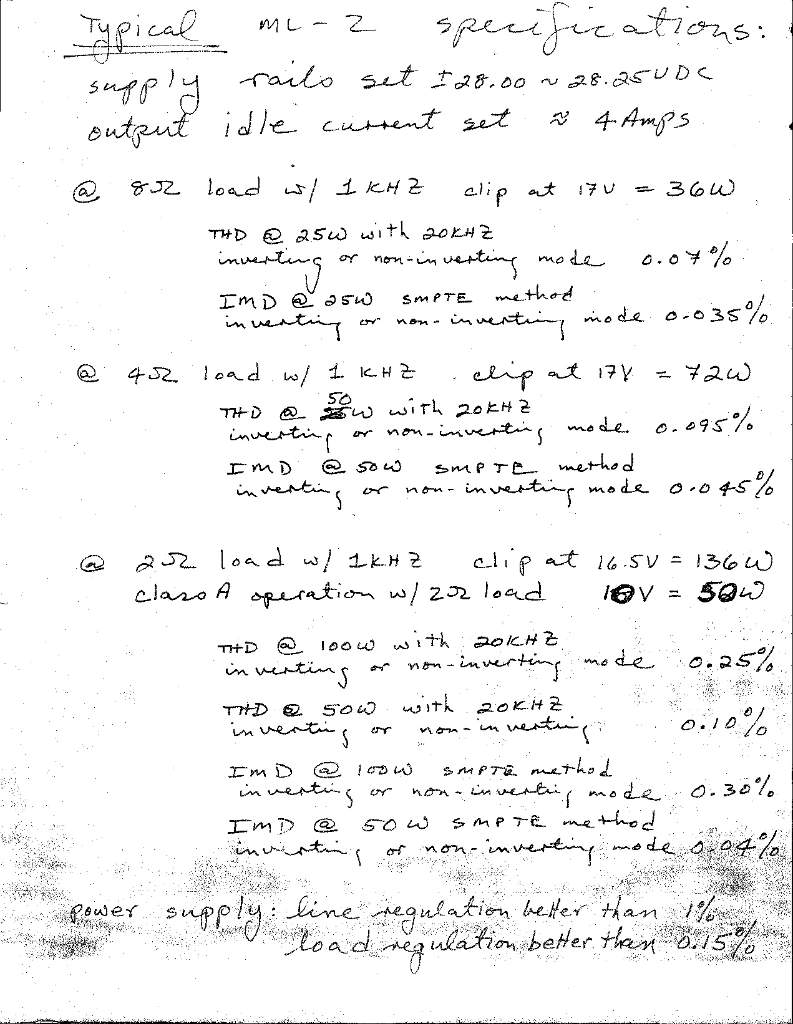 Typical ML-2 specifications:
supply rails set ±28.00 ~ 28.25VDC
output idle current set ≈ 4 Amps
@ 8Ω load w/ 1KHZ clip at 17V = 36W
THD @ 25W with 20KHZ
inverting or non-inverting mode 0.07%
IMD @ 25W SMPTE method
inverting or non-inverting mode 0.035%
@ 4Ω load w/ 1 KHZ clip at 17V = 72W
THD @ 50W with 20KHZ
inverting or non-inverting mode 0.095%
IMD @ 50W SMPTE method
inverting or non-inverting mode 0.045%
@ 2Ω load w/ 1KHZ clip at 16.5V = 136W
class A operation w/ 2Ω load 10V = 50W
THD @ 100W with 20KHZ
inverting or non-inverting mode 0.25%
THD @ 50W with 20KHZ
inverting or non-inverting 0.10%
IMD @ 100W SMPTE method
inverting or non-inverting mode 0.30%
IMD @ 50W SMPTE method
inverting or non-inverting mode 0.04%
power supply: line regulation better than 1%
load regulation better than 0.15%